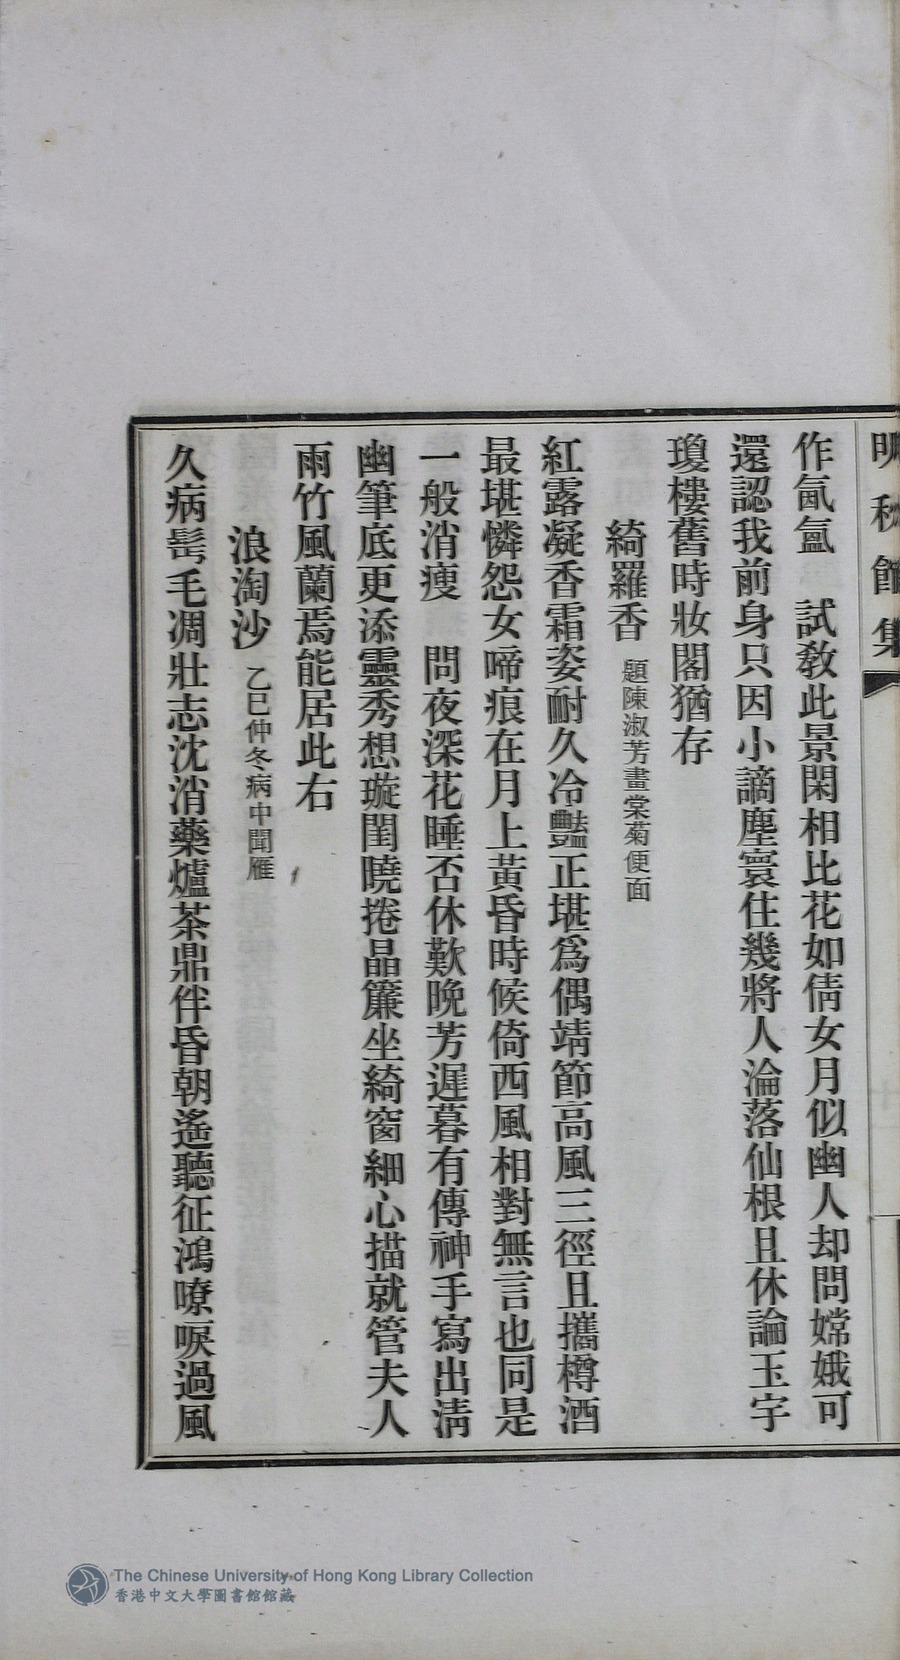 秋館集
作氤氳　試敎此景閑相比花如倩女月似幽人却問嫦娥可
還認我前身只因小謫塵寰住幾將人淪落仙根且休論玉宇
瓊樓舊時妝閣猶存
綺羅香　題陳淑芳畫棠菊便面
紅露凝香霜姿耐久冷豔正堪爲偶靖節高風三徑且攜樽酒
最堪憐怨女啼痕在月上黃昏時候倚西風相對無言也同是
一般消瘦　問夜深花睡否休歎晚芳遲暮有傳神手寫出淸
幽筆底更添靈秀想璇閨曉捲晶簾坐綺窗細心描就管夫人
雨竹風蘭焉能居此右
浪淘沙　乙巳仲冬病中聞雁
久病髩毛凋壯志沈消藥爐茶鼎伴昏朝遙聽征鴻嘹唳過風
The Chinese University of Hong Kong Library Collection
香港中文大學圖書館館藏